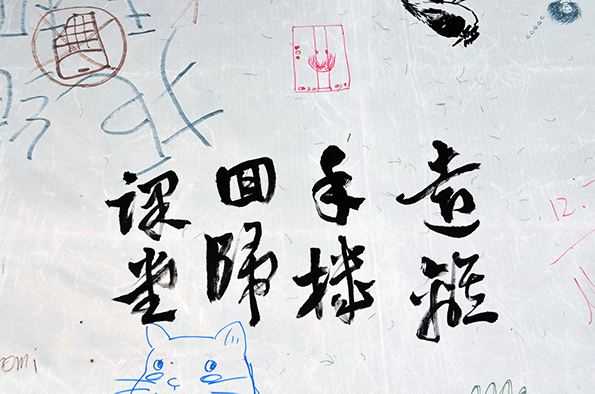 遠離
手機
回歸
课堂
fb
12.
omi